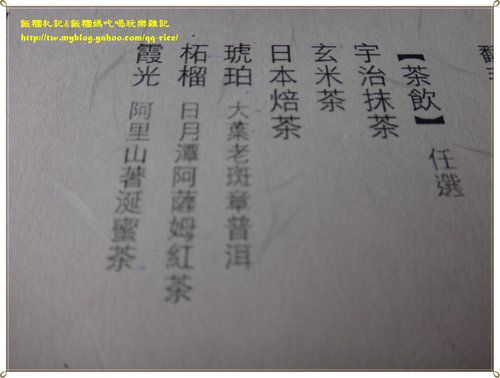 飯糰札記&飯糰媽吃喝玩樂雜記
http://tw.myblog.yahoo.com/qq-rice/
【茶飲】 任選
宇治抹茶
玄米茶
日本焙茶
琥珀 大葉老斑章普洱
柘榴 日月潭阿薩姆紅茶
霞光 阿里山著涎蜜茶